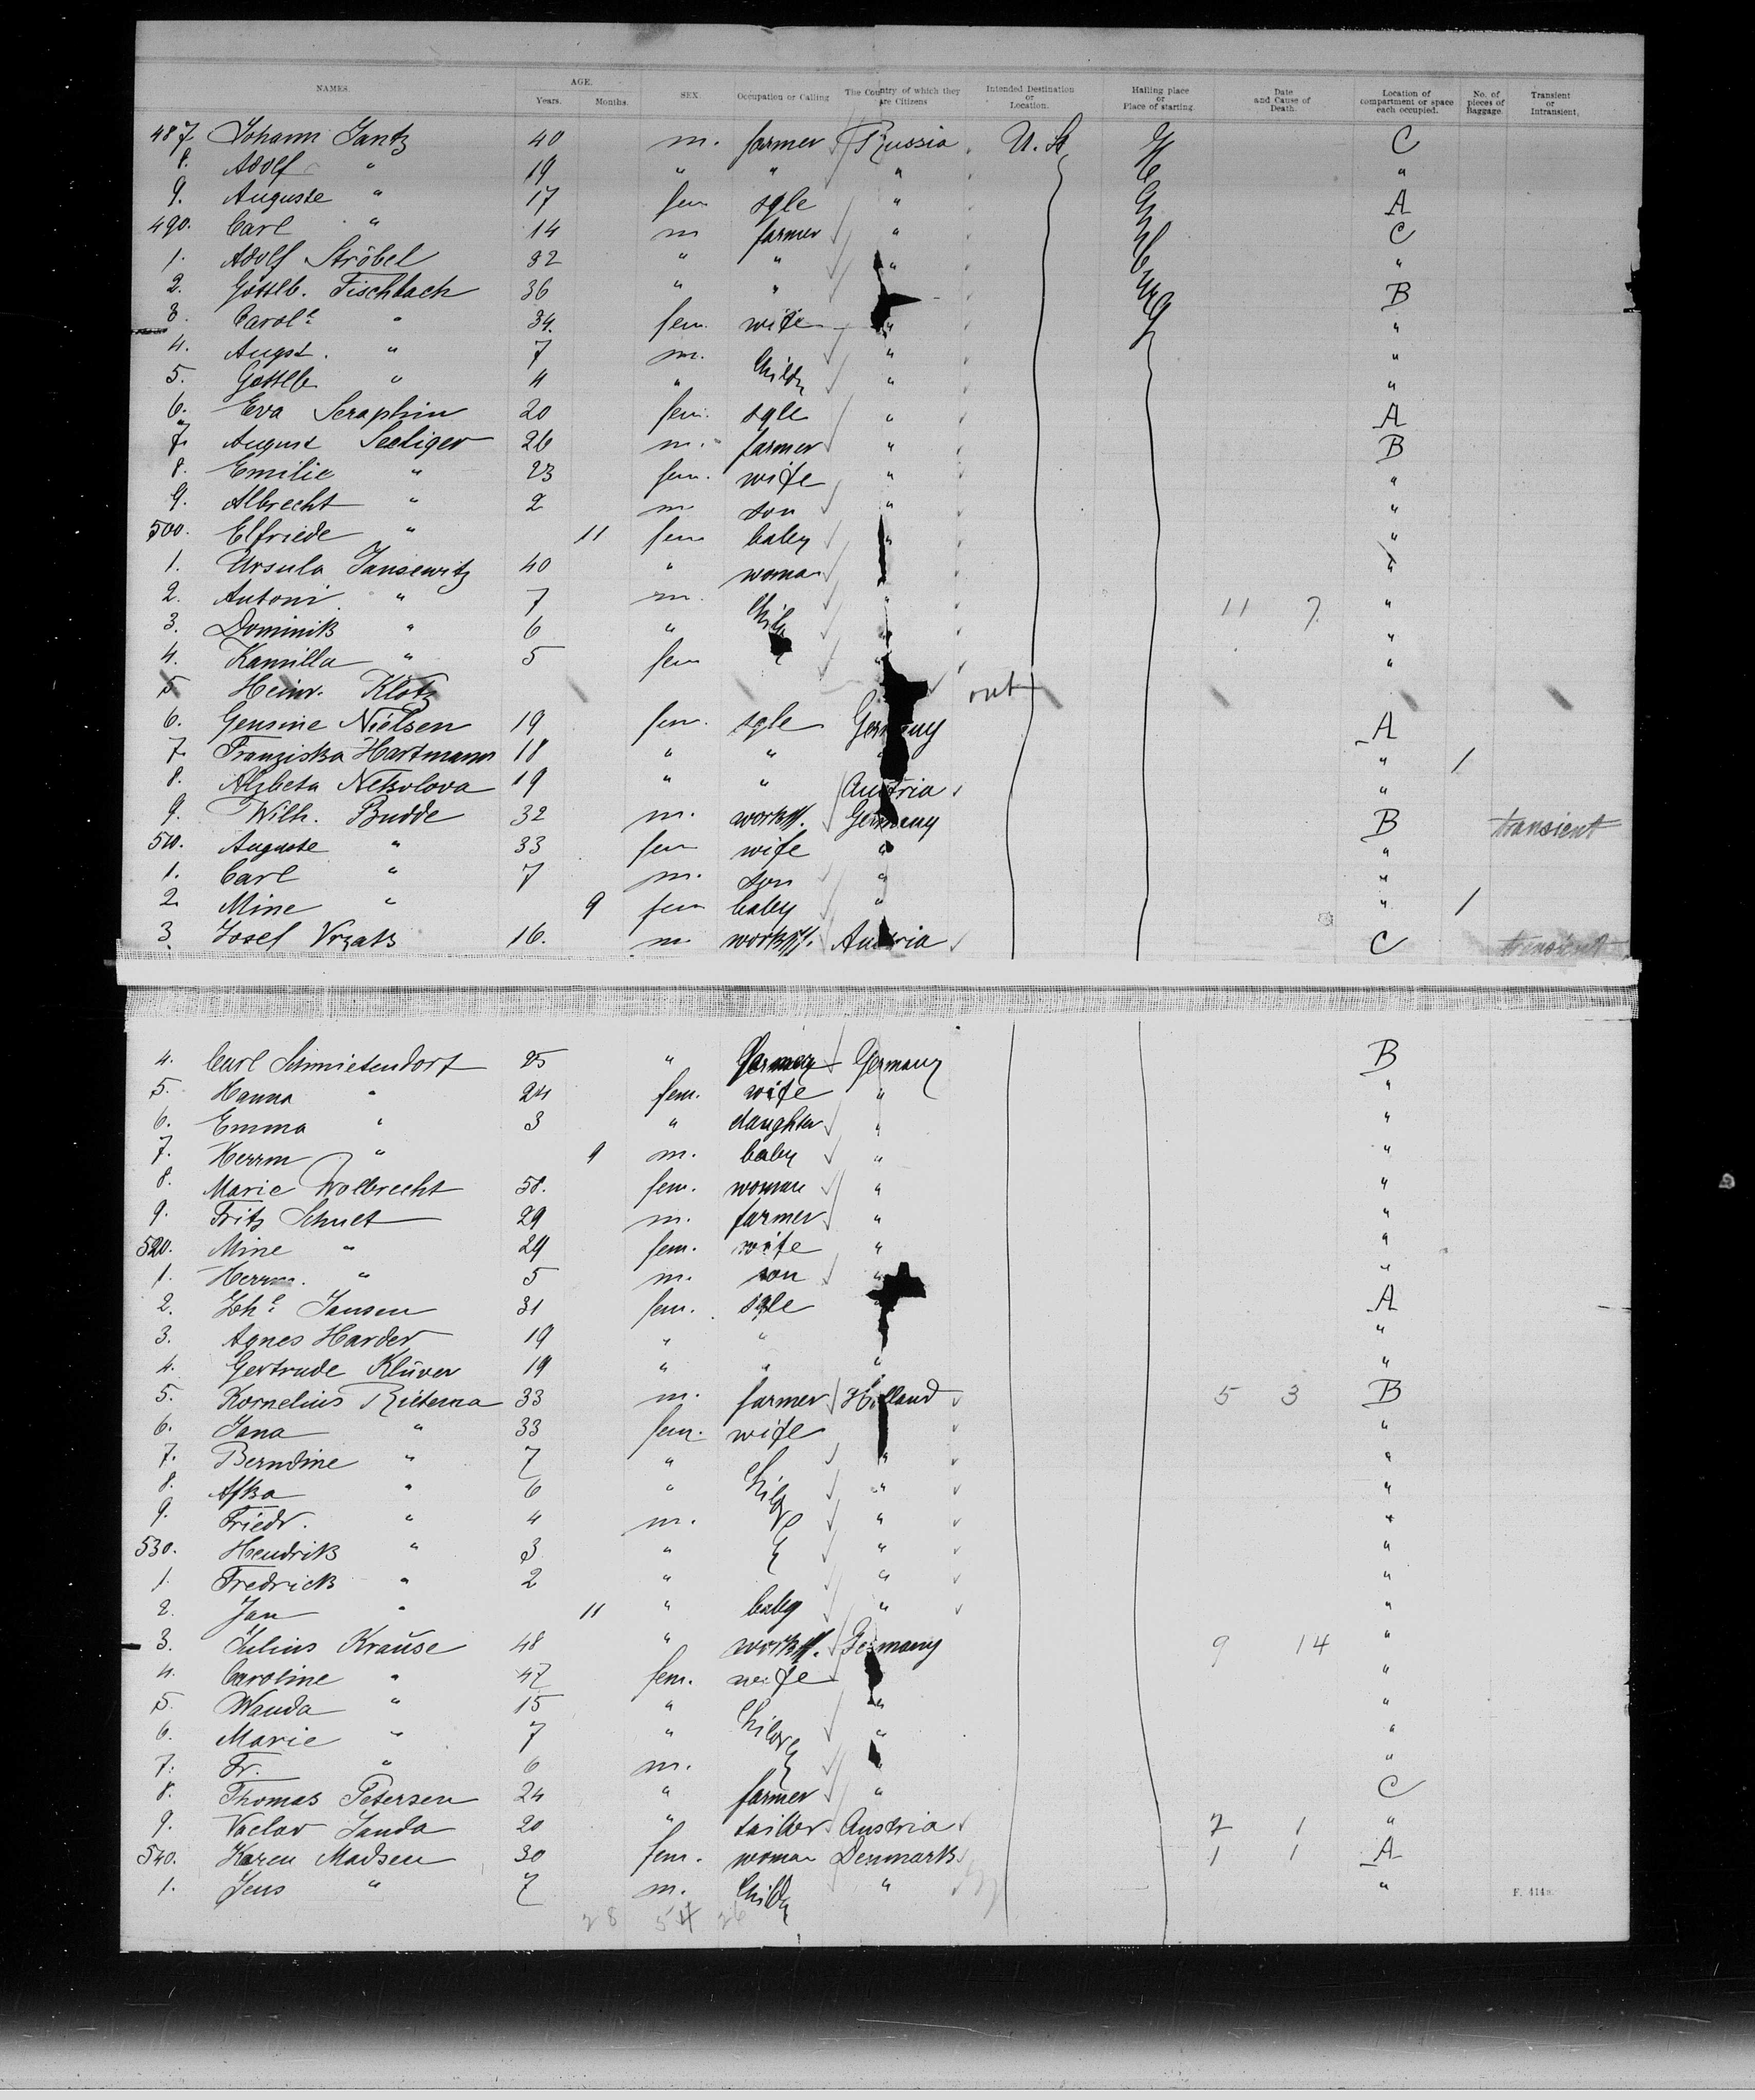 NAMES. AGE. Years. Months. SEX. Occupation or Calling The Country of which they are Citizens Intended Destination or Location. Hailing place or Place of starting. Date and Cause of Death. Location of compartment or space each occupied. No. of pieces of Baggage. Transient or Intransient.
487. Johann Jantz 40 m. farmer Russia U. St. Hamburg C
8. Adolf " 19 " " " "
9. Auguste " 17 fem sgle " A
490. Carl " 14 m farmer " C
1. Adolf Ströbel 32 " " " "
2. Gottlb. Fischbach 36 " " B
3. Carole " 34. fem. wife " "
4. Augst. " 7 m. Childr " "
5. Gottlb " 4 " " "
6. Eva Seraphin 20 fem. sgle " A
7. August Seeliger 26 m. farmer " B
8. Emilie " 23 fem. wife " "
9. Albrecht " 2 m. son " "
500. Elfriede " 11 fem baby " "
1. Ursula Jansewitz 40 " woman "
2. Antoni " 7 m. Child " 11 7. "
3. Dominik " 6 " " "
4. Kamilla " 5 fem " "
5 Heinr. Klotz out
6. Gensine Nielsen 19 fem. sgle Germany A
7. Franziska Hartmann 18 " " " 1
8. Alzbeta Nekolova 19 " " Austria "
9. Wilh. Budde 32 m. workm. Germany B transient
510. Auguste " 33 fem wife " "
1. Carl " 7 m. son " "
2. Mine " 9 fem baby " " 1
3. Josef Vrzak 16. m. workm. Austria C transient
4. Carl Schmietendorf 25 " farmer Germany B
5. Hanna " 24 fem. wife " "
6. Emma " 3 " daughter " "
7. Herrm " 9 m. baby " "
8. Marie Wolbrecht 58. fem. woman " "
9. Fritz Schult 29 m. farmer " "
520. Mine " 29 fem. wife " "
1. Herrm. " 5 m. son " "
2. Johe Jansen 31 fem. sgle A
3. Agnes Harder 19 " " "
4. Gertrude Klüver 19 " " " "
5. Kornelius 33 m. farmer Holland 5 3 B
6. Jana " 33 fem. wife "
7. Berndine " 7 " Childr " "
8. Afka " 6 " " "
9. Friedr. " 4 m. " "
530. Hendrik " 3 " " "
1. Fredrick " 2 " " "
2. Jan " 11 " baby " "
3. Julius Krause 48 " workm. Germany 9 14 "
4. Caroline " 47 fem. wife "
5. Wanda " 15 " Childr " "
6. Marie " 7 " " "
7. Fr. " 6 m. "
8. Thomas Petersen 24 " farmer " C
9. Vaclav Janda 20 " tailor Austria 7 1 "
540. Karen Madsen 30 fem. woman Denmark 1 1 A
1. Jens " 7 m. Childr " "
28 54 26
F. 414